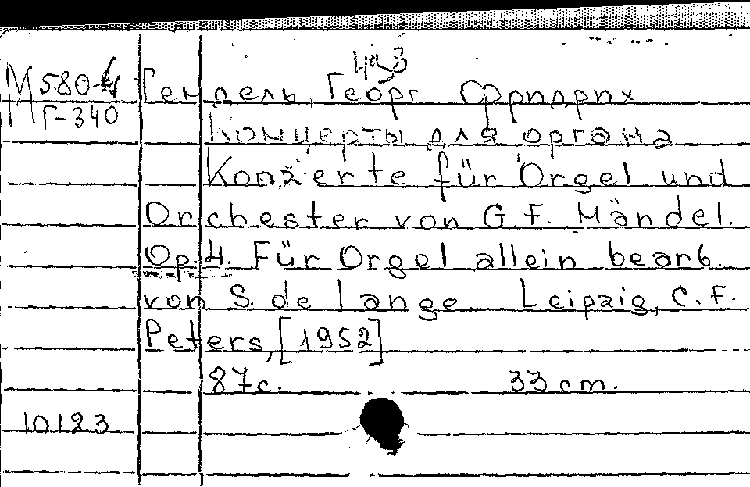 М 580-4 Гендель, Георг Фридрих
Г-340
Концерты для органа
Konzerte für Orgel und
Orchester von G. F. Händel.
Op.4. Für Orgel allein bearb.
von S. de Lange Leipzig, C. F.
Peters, [1952]
87с. 33 cm.
10123